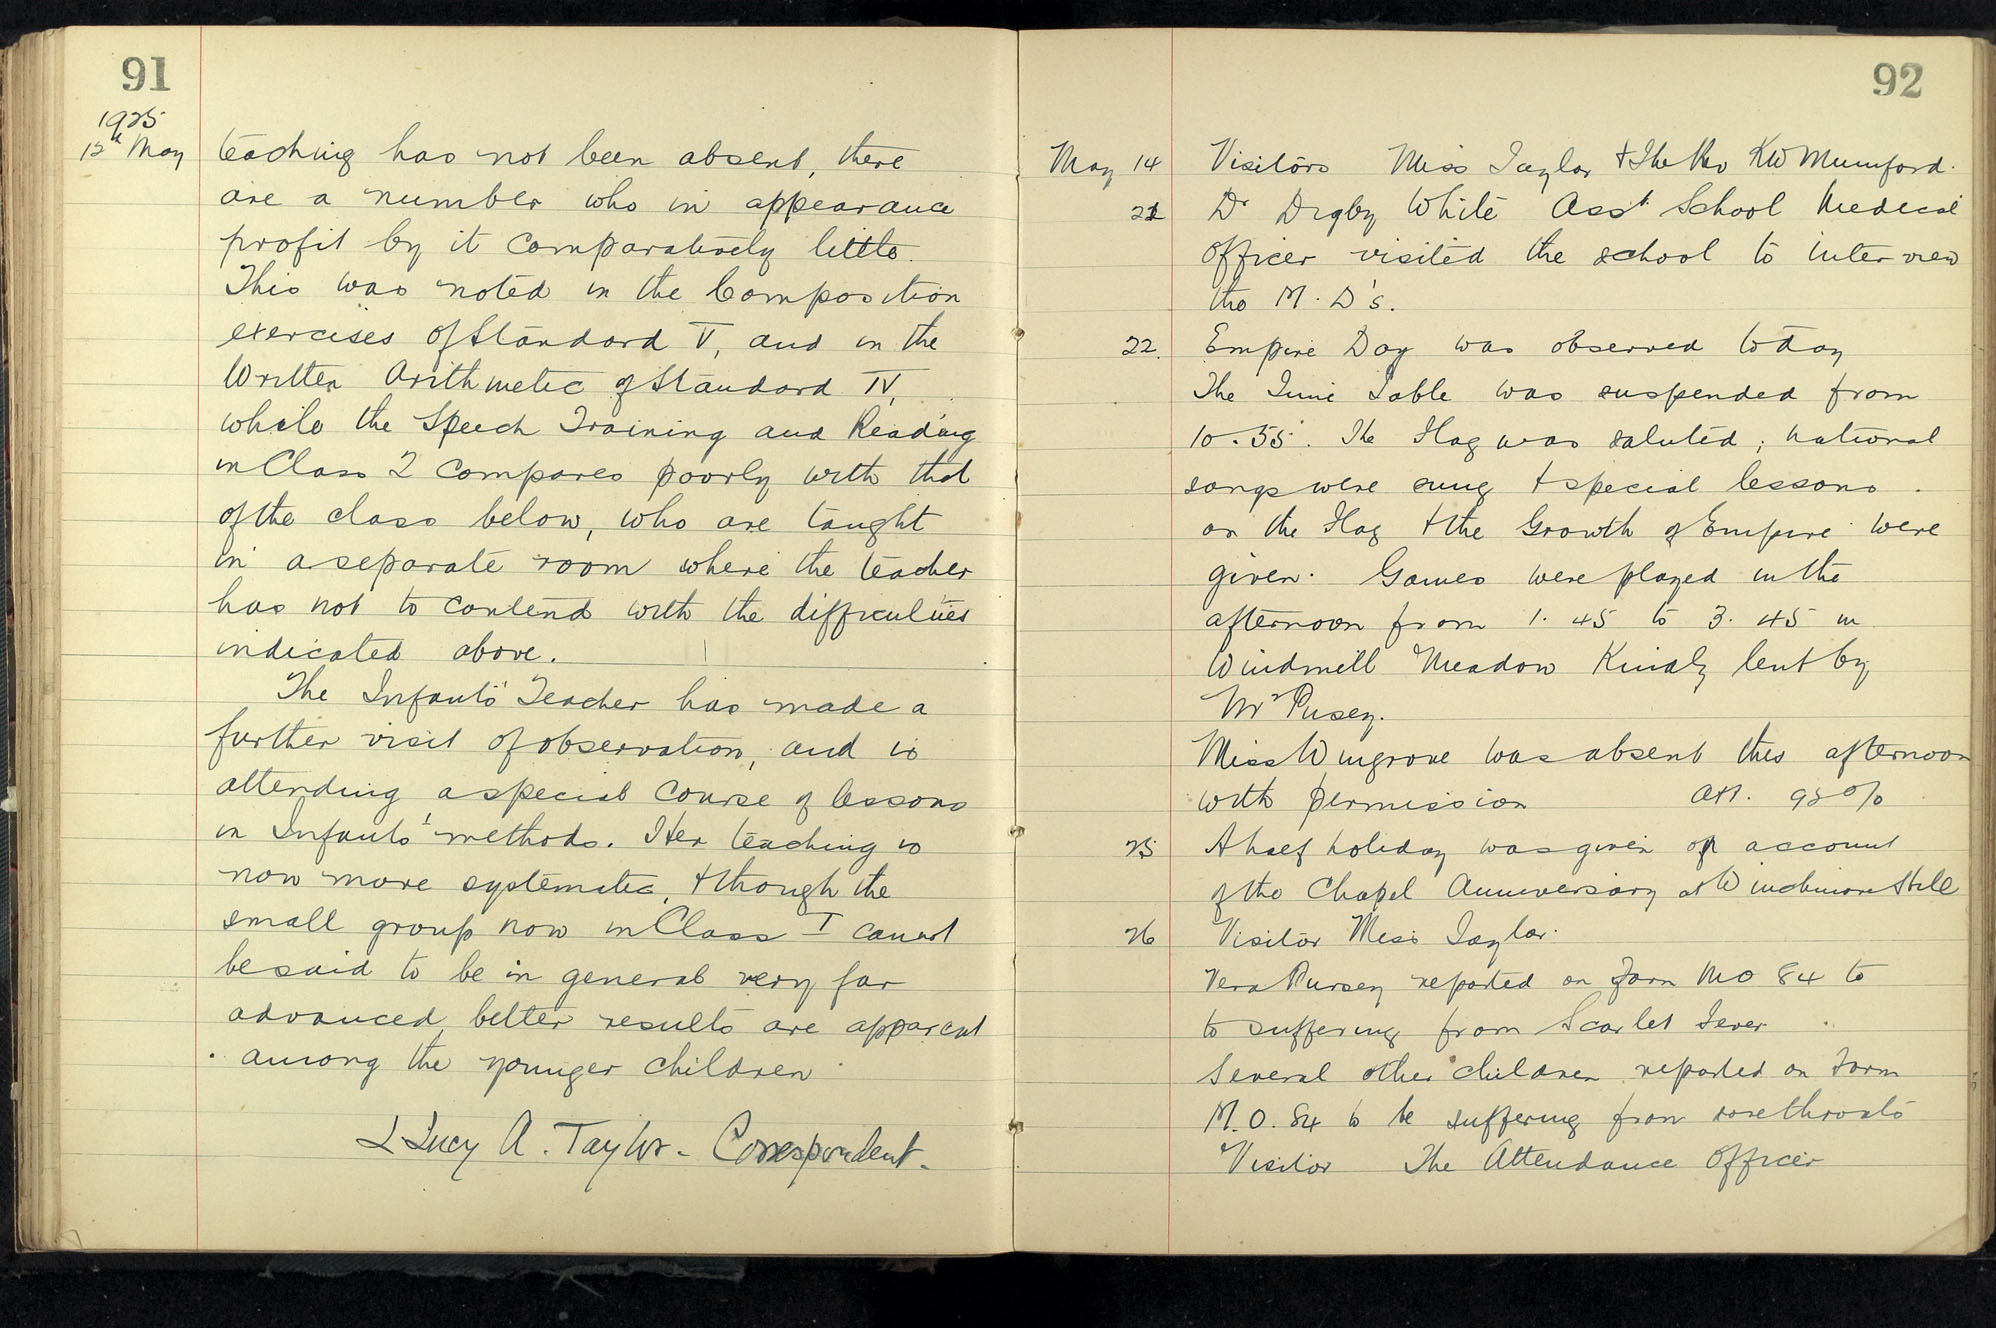 91
1925
12th May
teaching has not been absent, there
are a number who in appearance
profit by it comparatively little.
This was noted in the Composition
exercises of Standard V, and in the
Written Arithmetic of Standard IV,
while the Speech Training and Reading
in Class 2 compares poorly with that
of the class below, who are taught
in a separate room where the teacher
has not to contend with the difficulties
indicated above.
The Infants' Teacher has made a
further visit of observation, and is
attending a special course of lessons
in Infants' methods. Her teaching is
now more systematic, & though the
small group now in Class I cannot
be said to be in general very far
advanced, better results are apparent
among the younger children.
Lucy A. Taylor - Correspondent.
92
May 14 Visitors Miss Taylor & The Rev KW Mumford.
21 Dr Digby White Asst School Medical
Officer visited the school to interview
the M.D's.
22. Empire Day was observed today
The Time Table was suspended from
10.55. The Flag was saluted; national
songs were sung & special lessons
on the Flag & the Growth of Empire were
given. Games were played in the
afternoon from 1.45 to 3.45 in
Windmill Meadow Kindly lent by
Mr Pusey.
Miss Wingrove was absent this afternoon
with permission Att. %
25 A half holiday was given on account
of the Chapel Anniversary at Winchmore Hill
26 Visitor Miss Taylor.
Vera Pursey reported on Form MO 84 to
to suffering from Scarlet Fever
Several other children reported on Form
M.O. 84 to be suffering from sore throats
Visitor The Attendance Officer